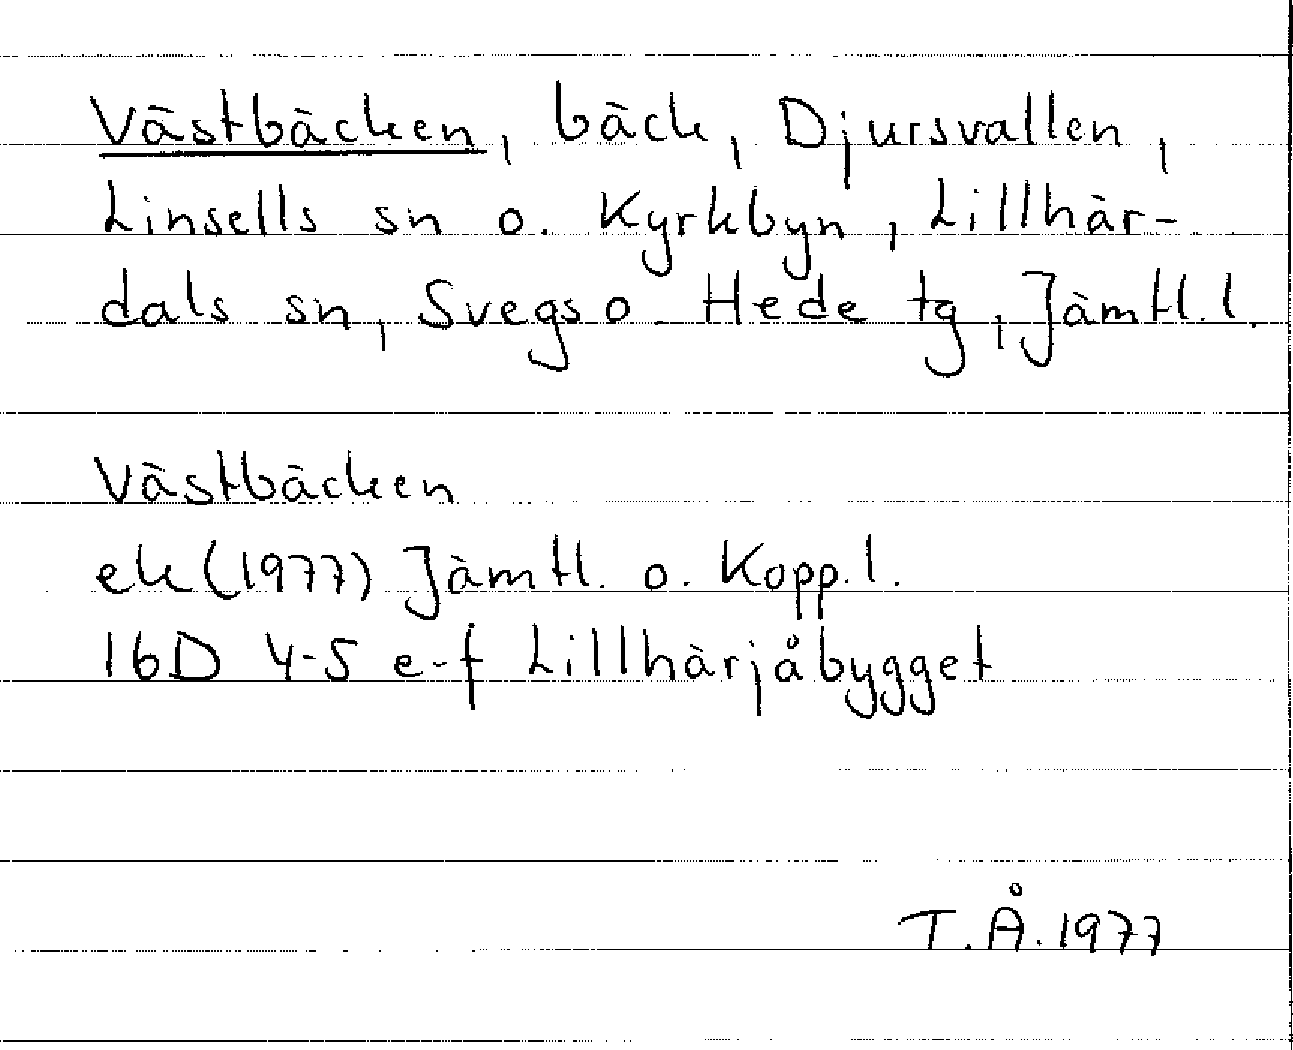 Västbäcken, bäck, Djursvallen,
Linsells sn o. Kyrkbyn, Lillhär-
dals sn, Svegs o. Hede tg, Jämtl. l.
Västbäcken
ek (1977) Jämtl. o. Kopp. l.
16D 4-5 e-f Lillhärjåbygget
T. Å. 1977